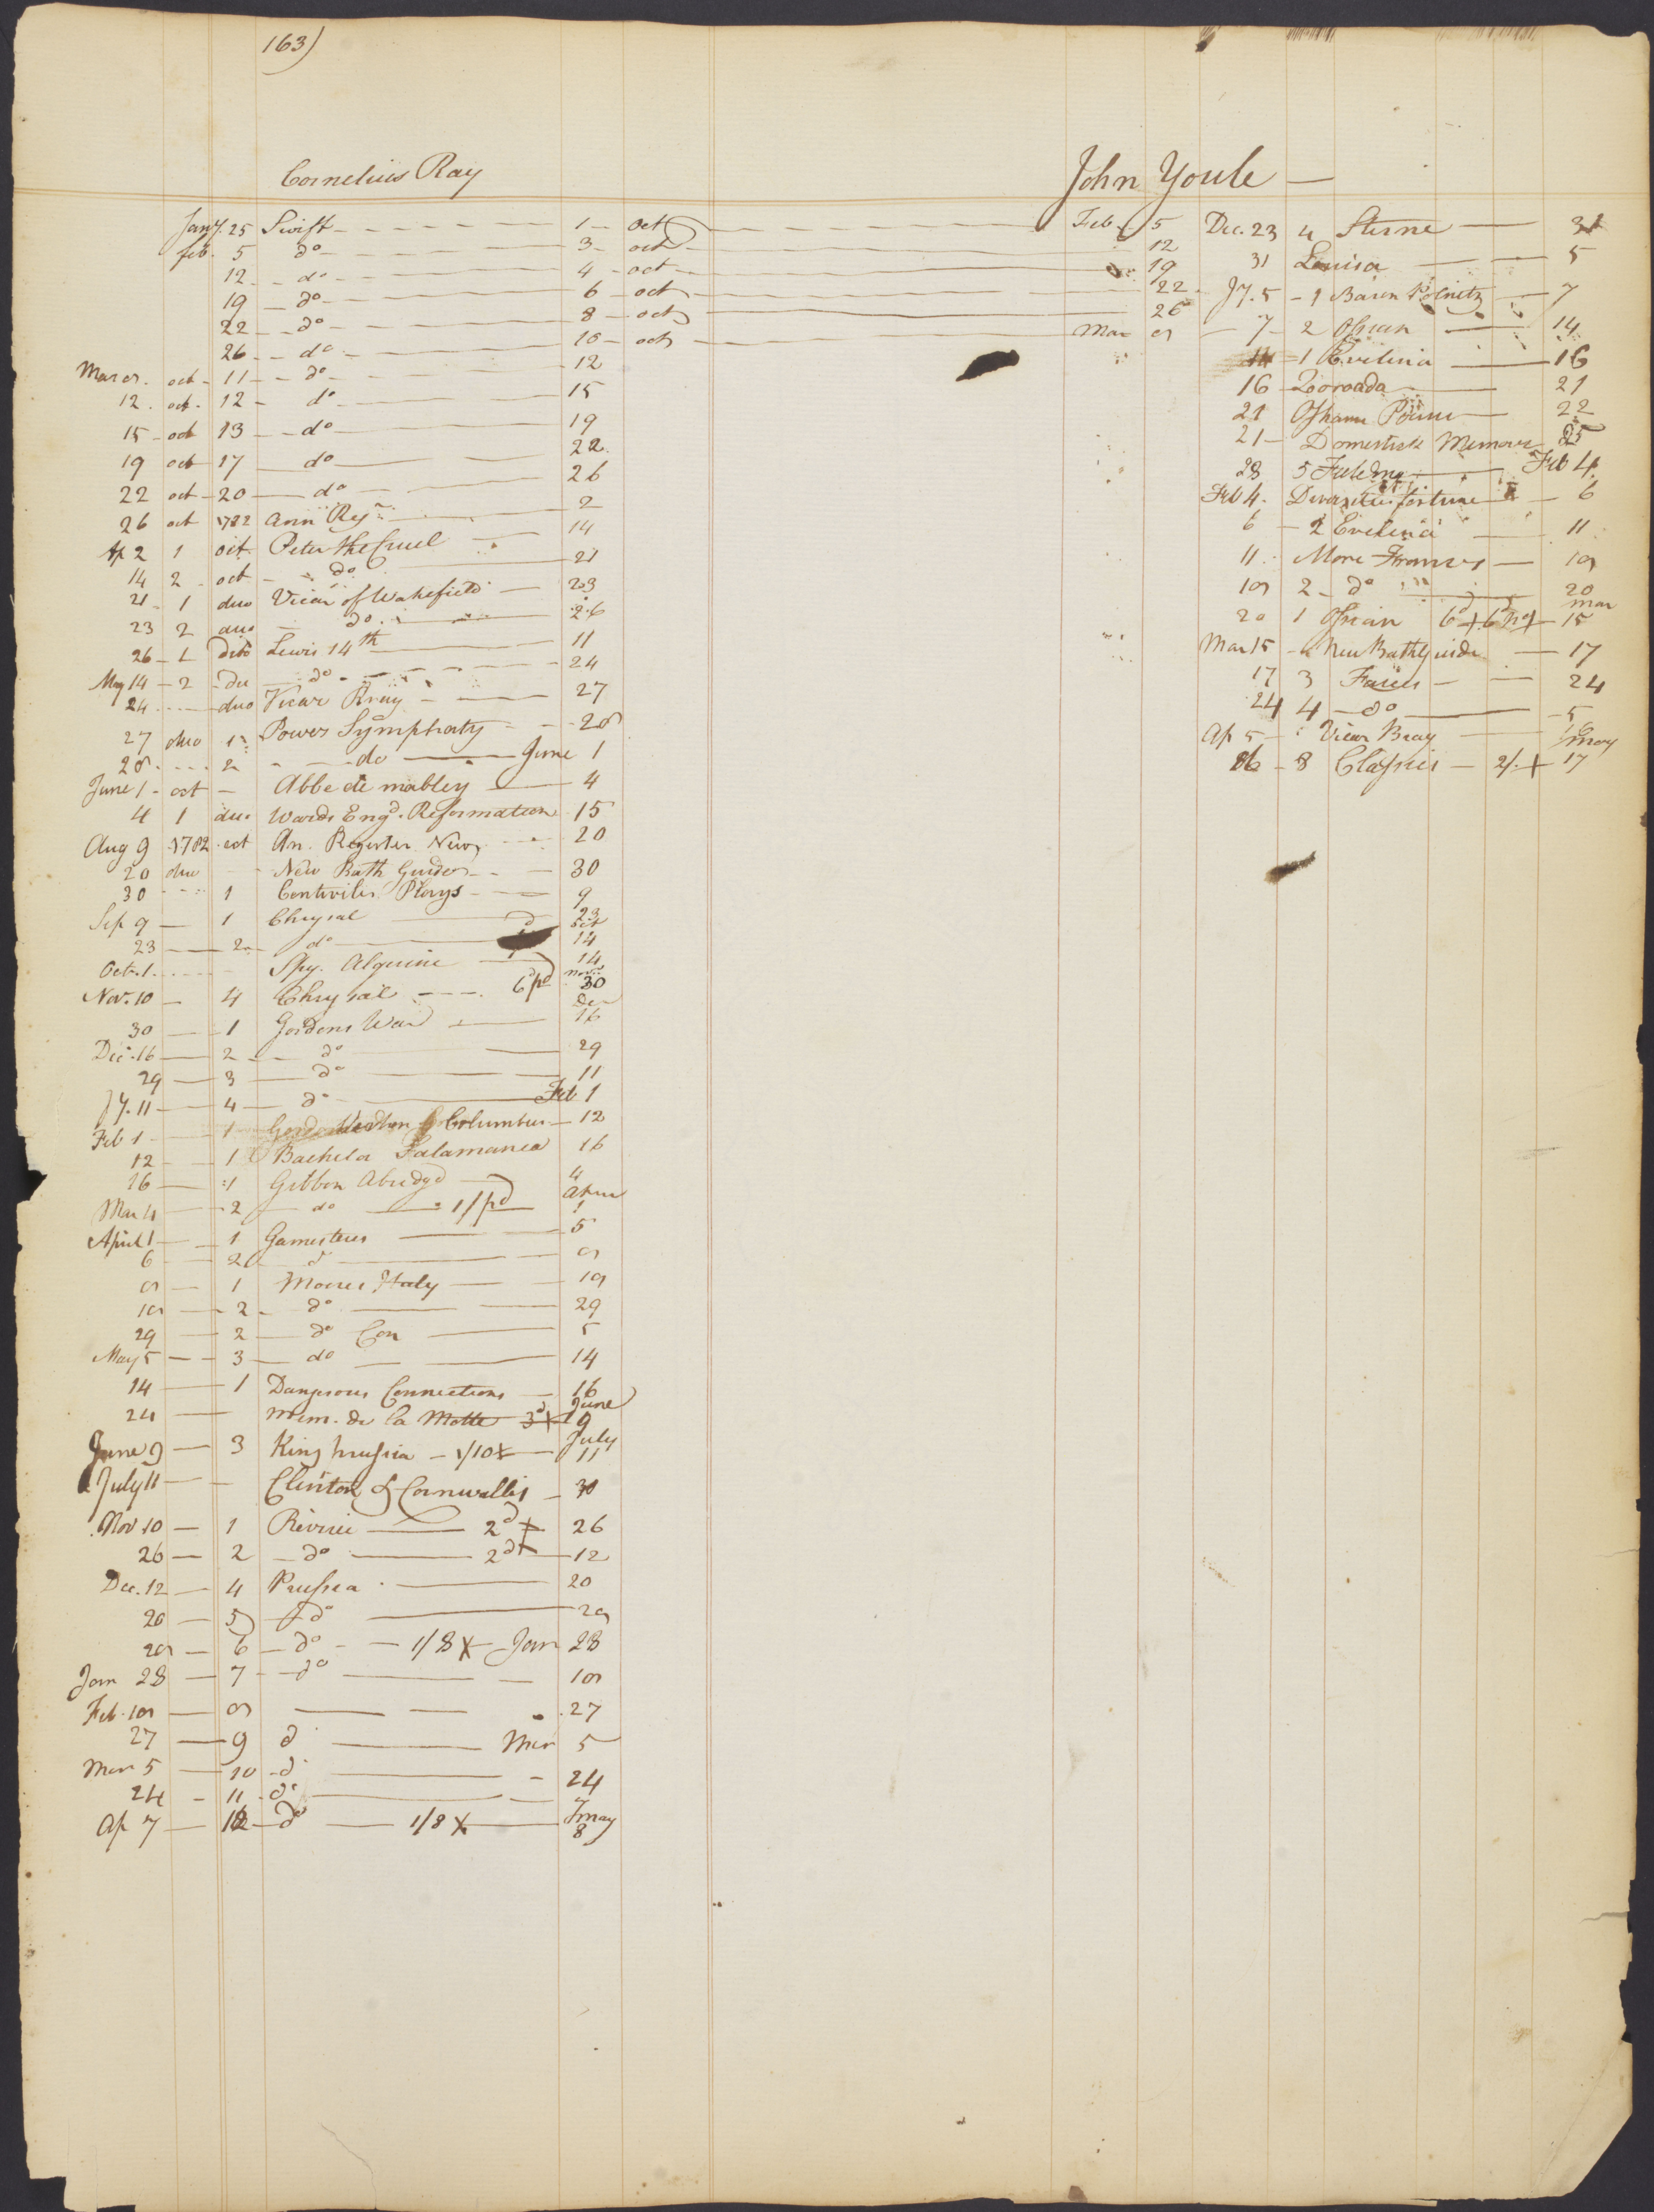 163)
Cornelius Ray
Jany. 25 Swift 1 oct Feb 5
feb. 5 do 3 oct 12
12 do 4 oct 19
19 do 6 oct 22
22 do 8 oct 26
26 do 10 oct Mar 8
Mar 8. oct 11 do 12
12. oct. 12 do 15
15 oct 13 do 19
19 oct 17 do 22
22 oct 20 do 26
26 oct 1782 Ann Regr 2
Ap 2 1 oct Peter the Cruel 14
14 2 oct do 21
21 1 duo Vicar of Wakefield 23
23 2 duo do 26
26 1 ditto Lewis 14th 11
May 14 2 du do 24
24 duo Vicar Bray 27
27 duo 1 Power Symphaty 28
28 2 do June 1
June 1 oct Abbe de mabley 4
4 1 duo Wards Engd. Reformation 15
Aug 9 1782 oct An. Register New 20
20 duo New Bath Guide 30
30 1 Centivilis Plays 9
Sep 9 1 Chrysal 23
23 2 do oct 14
Octr. 1 Spy. Algerine 14
Nov. 10 4 Chrysal 6d pd nov. 30
30 1 Gordons War De 16
Dec. 16 2 do 29
29 3 do 11
Jy. 11 4 do Feb 1
Feb 1 1 Columbus 12
12 1 Bachelor Salamanca 16
16 1 Gibbon Abridgd 4
Mar 4 2 do 1/pd Aprill 1
April 1 1 Gamesters 5
6 2 d 8
8 1 Moores Italy 18
18 2 do 29
29 2 do Con 5
May 5 3 do 14
14 1 Dangerous Connections 16
24 mem. de la Motte 3d X June 9
June 9 3 King prussia 1/10 X July 11
July 11 Clinton & Cornwallis 30
Nov 10 1 Review 2d X 26
26 2 do 2d X 12
Dec. 12 4 Prussia 20
20 5 do 28
28 6 do 1/8 X Jan 28
Jan 28 7 do 18
Feb. 18 8 27
27 9 d Mar 5
Mar 5 10 d 24
24 11 do 7
Ap 7 12 do 1/8 X may 8
John Youle
Dec. 23 4 Sterne 31
31 Louisa 5
Jy. 5 1 Baron Polnitz 7
7 2 Ossian 14
14 1 Evelina 16
16 Zoroada 21
21 Oshams Poems 22
21 Domestick Memoirs 25
28 5 Fielding Feb 4
Feb 4. fortune 6
6 2 Evelena 11
11 More France 18
18 2 do 20
20 1 Ossian 6d X 6d pd X mar 15
Mar 15 New Bath Guide 17
17 3 Faires 24
24 4 do 5
Ap 5 Vicar Bray 16
16 8 Classics 2/. X may 17